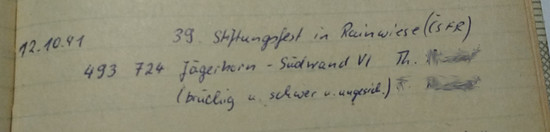 12.10.91 39. Stiftungsfest in Rainwiese (ČSFR)
493 724 Jägerhorn - Südwand VI Th.
(brüchig u. schwer u. ungesich.)